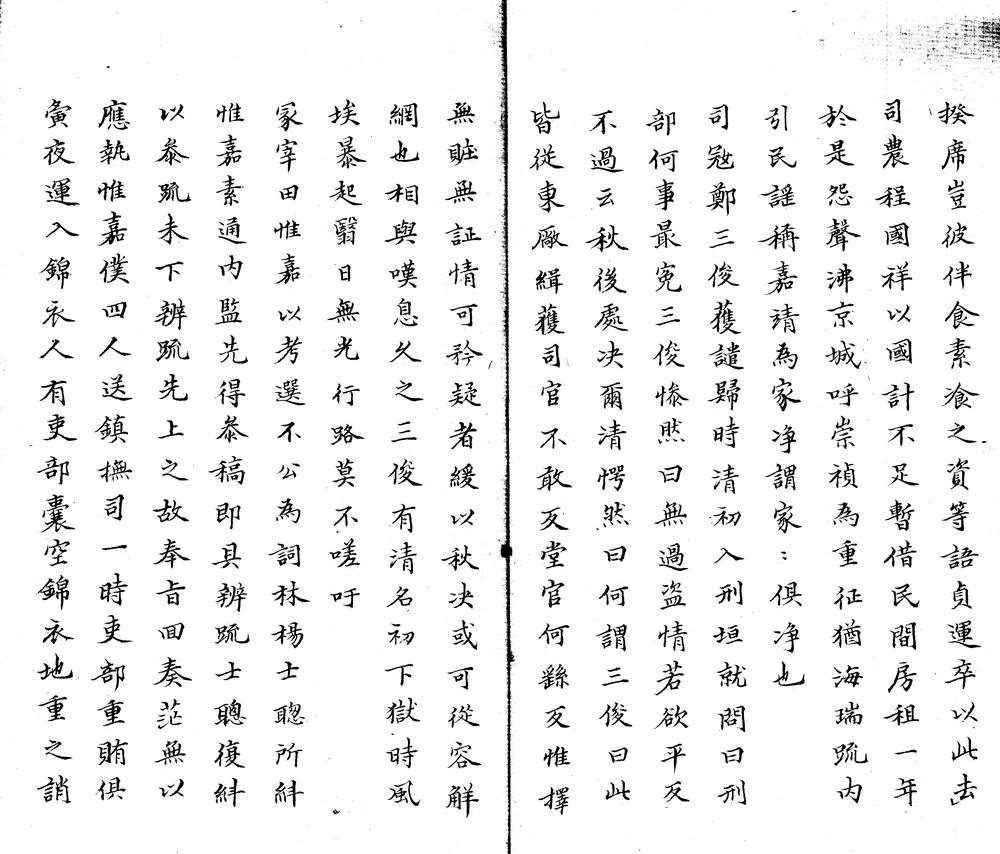 揆席豈彼伴食素飡之資等語貞運卒以此去
司農程國祥以國計不足暫借民間房租一年
於是怨聲沸京城呼崇禎為重征猶海瑞疏內
引民謠稱嘉靖為家凈謂家:俱凈也
司冦鄭三俊獲譴歸時清初入刑垣就問曰刑
部何事最寃三俊慘然曰無過盜情若欲平反
不過云秋後處决爾清愕然曰何謂三俊曰此
皆從東厰緝獲司官不敢反堂官何繇反惟擇
無賍無証情可矜疑者緩以秋决或可從容解
網也相與嘆息久之三俊有清名初下獄時風
埃暴起翳日無光行路莫不嗟吁
冢宰田惟嘉以考選不公為詞林楊士聰所糾
惟嘉素通内監先得叅稿即具辨疏士聰復糾
以叅疏未下辨疏先上之故奉旨回奏茫無以
應執惟嘉僕四人送鎮撫司一時吏部重賄俱
夤夜運入錦衣人有吏部囊空錦衣地重之誚